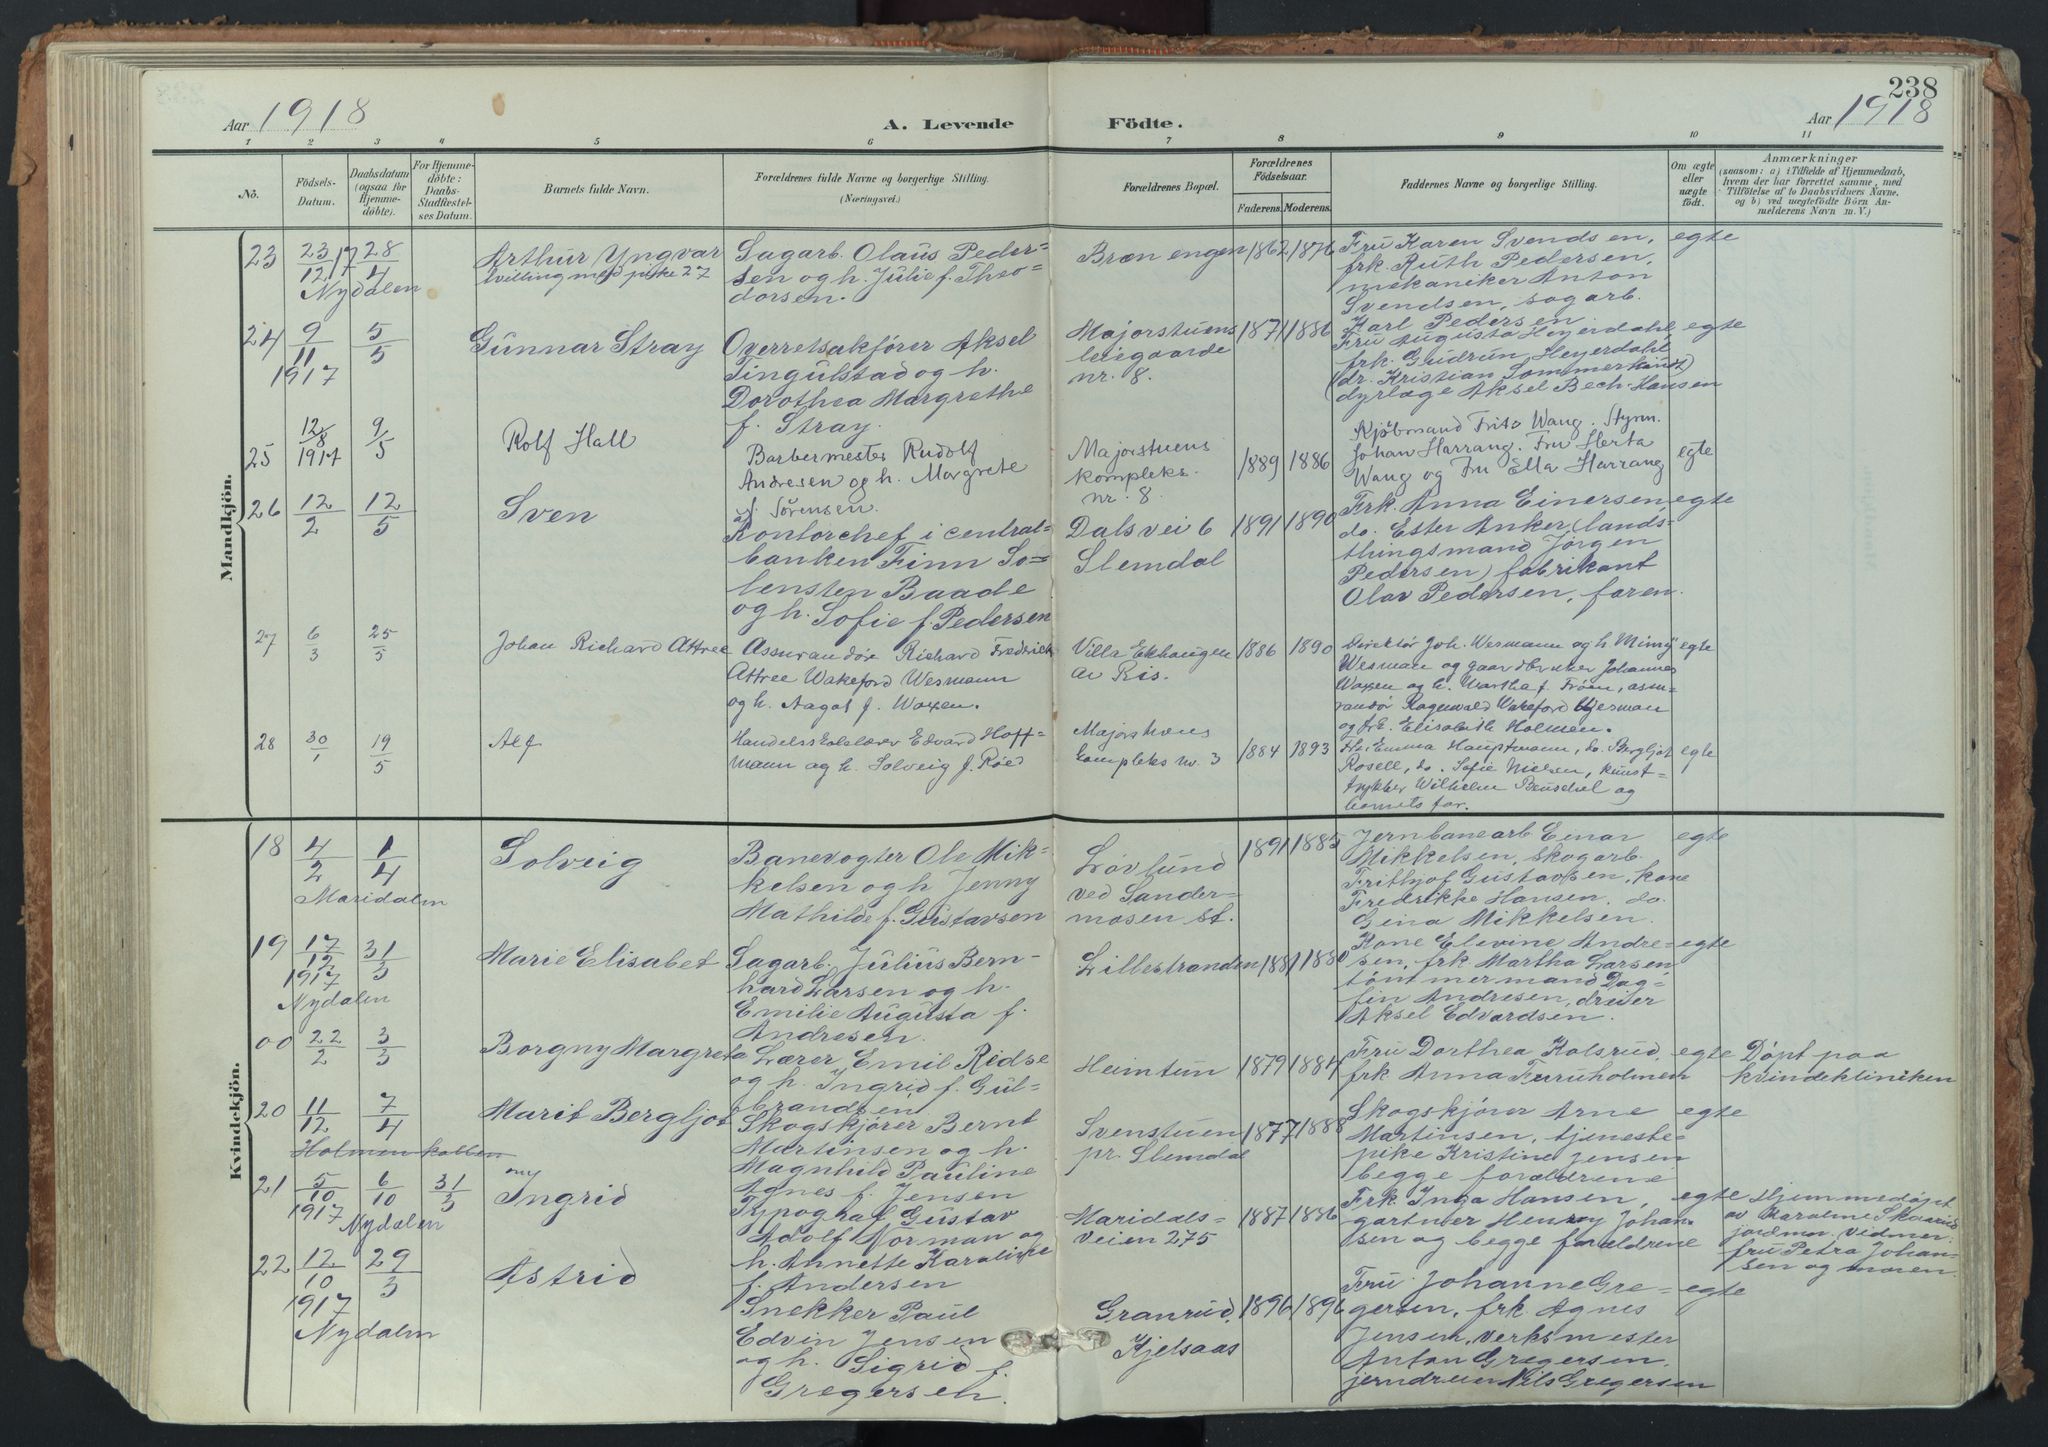 238
Aar 1918
A. Levende Födte.
Aar 1918
1 2 3 4 5 6 7 8 9 10 11
No.
Födsels-Datum.
Daabsdatum (ogsaa for Hjemmedöbte).
For Hjemmedöbte: Daabs-Stadfæstelses Datum.
Barnets fulde Navn.
Forældrenes fulde Navne og borgerlige Stilling.
(Næringsvei.)
Forældrenes Bopæl.
Forældrenes Födselsaar.
Faderens. Moderens.
Faddernes Navne og borgerlige Stilling.
Om ægte eller uægte födt.
Anmærkninger
(saasom: a) i Tilfælde af Hjemmedaab, hvem der har forrettet samme, med Tilföielse af to Daabsvidners Navne. og b) ved uægtefödte Börn Anmelderens Navn m. V.)
Mandkjön.
23 23/12 17 28/4 Nydalen
Arthur Yngvar
tvilling med pike 27
Sagarb. Olaus Peder-
sen og h. Julie f. Theo-
dorsen.
Brænengen 1862 1876
Fru Karen Svendsen,
frk. Ruth Pedersen,
mekaniker Anton
Svendsen, sagarb.
Karl Pedersen
egte
24 9/11 1917 5/5
Gunnar Stray
Overretssakfører Aksel
Tingulstad og h.
Dorothea Margrethe
f. Stray.
Majorstuens
leiegaarde
nr. 8.
1871 1886
Fru Augusta Heyerdahl,
frk. Gudrun Heyerdahl,
(dr. Kristian Sommerfeldt)
dyrlæge Aksel Bech-Hansen
egte
25 12/8 1917 9/5
Rolf Hall
Barbermester Rudolf
Andresen og h. Margrete
f. Sørensen.
Majorstuens
kompleks
nr. 8.
1889 1886
Kjøbmand Fritz Wang. Styrm.
Johan Harrang. Fru Herta
Wang og Fru Ella Harrang
egte
26 12/2 12/5
Sven
Kontorchef i central-
banken Finn So-
lensten Baade
og h. Sofie f. Pedersen
Dalsvei 6
Slemdal
1891 1890
Frk. Anna Einersen,
do. Ester Anker (lands-
thingsmand Jørgen
Pedersen) fabrikant
Olav Pedersen, faren.
egte
27 6/3 25/5
Johan Richard Attree
Assurandør Richard Fredrick
Attree Wakeford Wesmann
og h. Aagot f. Woxen.
Villa Ekhaugen
av Ris.
1886 1890
Direktør Joh. Wesmann og h. Mimy
Wesmann og gaardbruker Johannes
Woxen og h. Martha f. Frøen, assu-
randør Ragnvald Wakeford
og frk. Elisabeth Holmen.
egte
28 30/1 19/5
Alf
Handelsskolelærer Edvard Hoff-
mann og h. Solveig f. Røed
Majorstuens
kompleks nr. 3
1884 1893
Frk. Emma Hauptmann, do. Bergljot
Rosell, do. Sofie Nielsen, kunst-
trykker Wilhelm Beuschel og
barnets far.
egte
Kvindekjön.
18 4/2 1/4 Maridalen
Solveig
Banevogter Ole Mik-
kelsen og h. Jenny
Mathilde f. Gustavsen
Løvlund
ved Sander-
mosen st.
1891 1885
Jernbanearb. Einar
Mikkelsen, skogarb.
Frithjof Gustavsen, kone
Fredrikke Hansen, do.
Gina Mikkelsen.
egte
19 17/12 1917 31/3 Nydalen
Marie Elisabet
Sagarb. Julius Bern-
hard Larsen og h.
Emilie Augusta f.
Andresen
Lillestranden 1881 1880
Kone Elevine Andre-
sen, frk Martha Larsen
tømmermand Dag-
fin Andresen, dreier
Aksel Edvardsen.
egte
00 22/2 3/3
Borgny Margrete
Lærer Emil Ridse
og h. Ingrid f. Gul-
brandsen
Heimtun 1879 1884
Fru Dorthea Kolsrud,
frk Anna Furuholmen
egte
Døpt paa
kvindekliniken
20 11/12 7/4 Holmenkollen
Marit Bergljot
Skogskjører Bernt
Martinsen og h.
Magnhild Pauline
Agnes f. Jensen
Svenstuen
pr. Slemdal
1877 1888
Skogskjører Arne
Martinsen, tjeneste-
pike Kristine Jensen
begge forældrene
egte
21 5/10 1917 6/10 31/3 Nydalen
Ingrid
Typograf Gustav
Adolf Norman og
h. Annette Karoline
f. Andersen
Maridals-
veien 275
1887 1886
Frk. Inga Hansen,
gartner Henry Johan-
sen og begge forældrene
egte
Hjemmedøpt
av Karoline Skaarud
jordmor. vidner:
fru Petra Johan-
sen og moren.
22 12/10 1917 29/3 Nydalen
Astrid
Snekker Paul
Edvin Jensen
og h. Sigrid f.
Gregersen.
Granrud,
Kjelsaas
1896 1896
Fru Johanne Gre-
gersen, frk. Agnes
Jensen, verksmester
Anton Gregersen,
jerndreier Nils Gregersen
egte